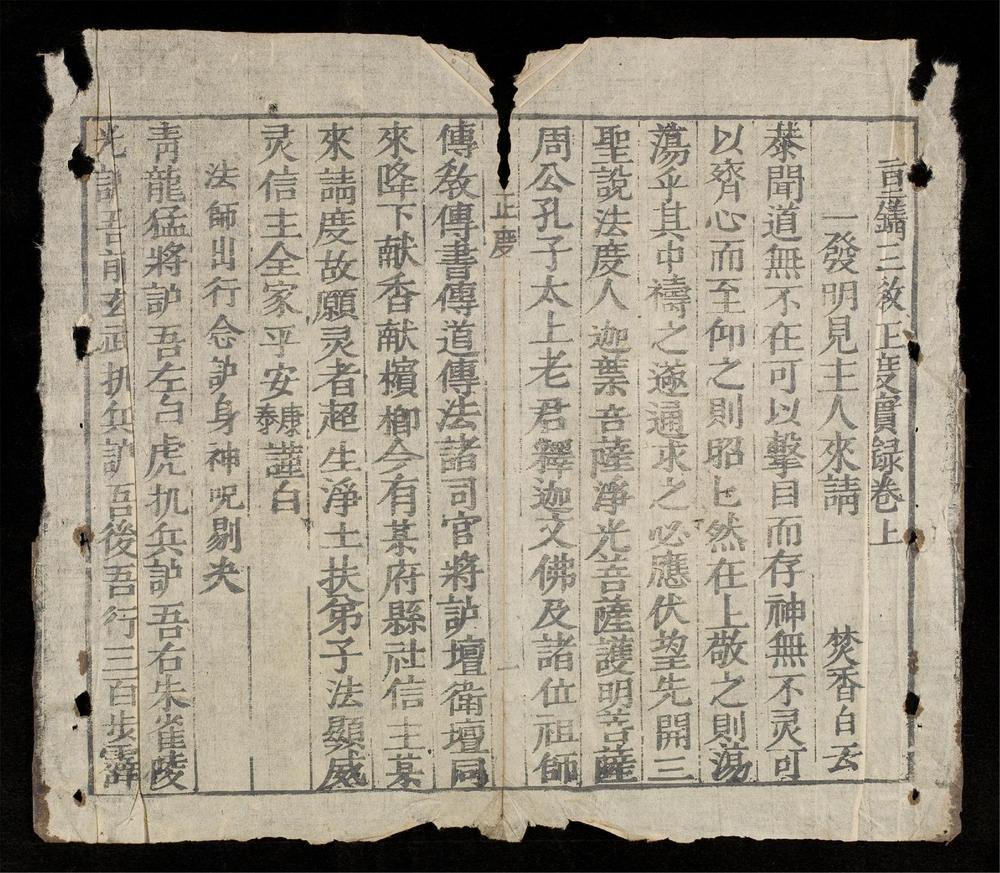 三教正度實録卷上
一發明見主人來請 焚香白云
恭聞道無不在可以擊目而存神無不灵可
以齊心而至仰之則昭匕然在上敬之則蕩
蕩乎其中禱之遂通求之必應伏望先開三
聖說法度人迦葉菩薩淨光菩薩護明菩薩
周公孔子太上老君釋迦文佛及諸位祖師
正度
一
傳教傳書傳道傳法諸司官將護壇衛壇同
來降下献香献檳榔今有某府縣社信主某
來請度故願灵者超生淨土扶弟子法顯威
灵信主全家平安康泰謹白
法師出行念護身神呪剔夬
青龍猛將護吾左白虎扒兵護吾右朱雀陵
光護吾前玄武扒兵護吾後吾行三百步霹